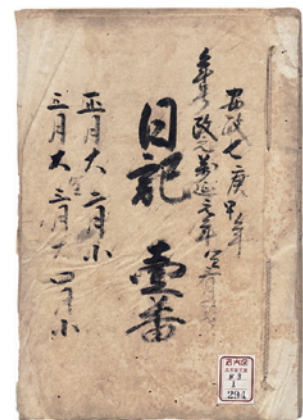 安政七庚申年
年号改元萬延元年
日記 壹番
正月大 二月小
三月大 三月大 四月小
294